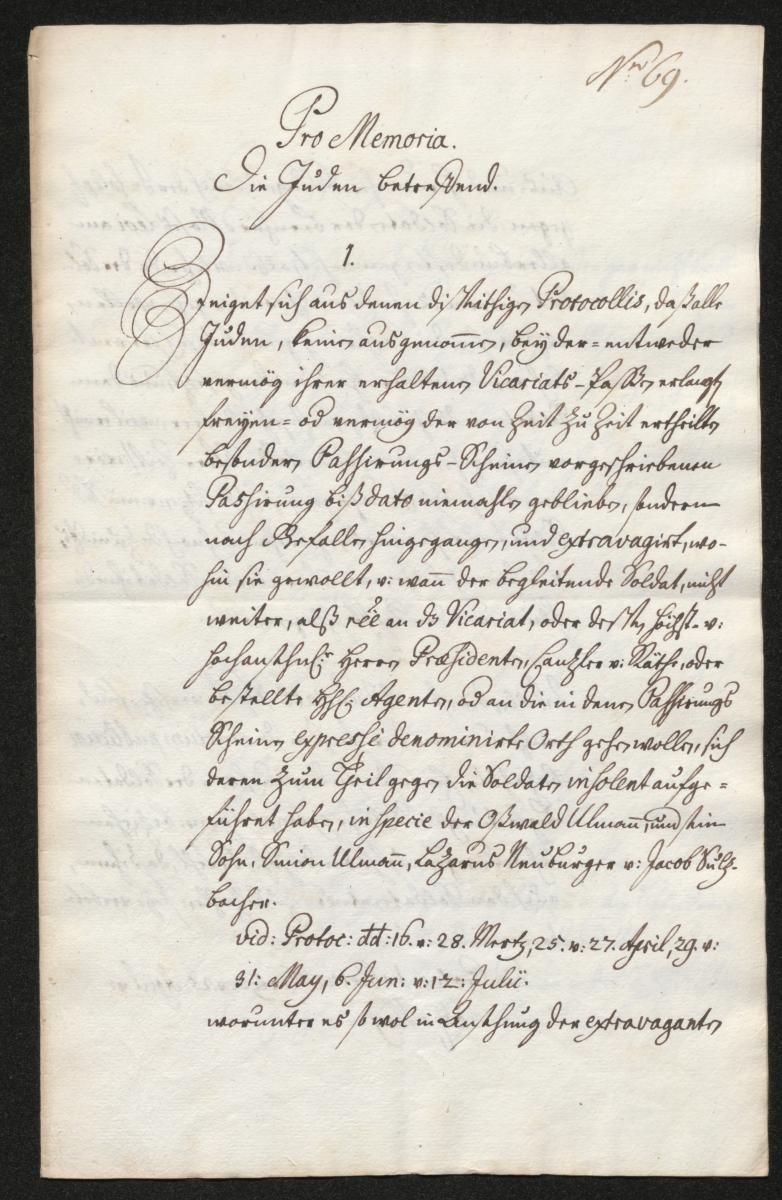 Nro 69.
Pro Memoria.
Die Juden betreffend.
1.
Zeiget sich aus denen dißeithigen Protocollis, daß alle
Juden, keinen ausgenom̄en, bey der= entweder
vermög ihrer erhaltenen Vicariats-Passen erlangt
freyen= od vermög der von Zeit zu Zeit ertheilten
besondern Passirungs-Scheinen vorgeschriebenen
Passirung biß dato niemahlen geblieben, sondern
nach Gefallen hingegangen, und extravagirt, wo-
hin sie gewollt, v: wan̄ der begleitende Soldat, nicht
weiter, alß an dz Vicariat, oder deßen höchst- v:
hochansehnl: Herren Præsidenten, Cantzler v: Räthe, oder
bestellte Agenten, od an die in denen Passirungs
Scheinen expressé denominirte Orth gehen wollen, sich
deren zum Theil gegen die Soldaten insolent aufge=
führet haben, in specie der Oßwald Ulman̄, und sein
Sohn, Simon Ulman̄, Lazarus Neuburger v: Jacob Sultz-
bacher.
vid: Protoc: dd: 16. v: 28. Mertz, 25. v: 27. April, 29. v:
31: May, 6. Jun: v: 12: Julii.
worunter es so wol in Ansehung der extravaganten